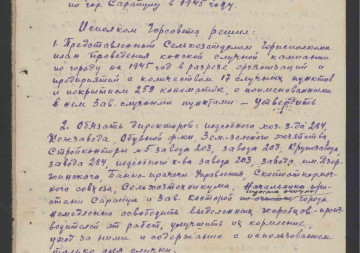 по гор. Сарапулу в 1945 году.
Исполком Горсовета решил:
1. Представленный Сельхозотделом Горисполкома
план проведения конской случной кампании
по городу на 1945 год в разрезе организаций и
предприятий с количеством 17 случных пунктов
и покрытием 259 конематок, с поименованными
в нем Зав. случными пунктами — утвердить
2. Обязать директоров: подсобного хоз. з-да 284,
Кожзавода, Обувной ф-ки,
Стройконторы завода 203, завода 203,
завода 284, подсобного х-ва завода 203, завода им. Дзер-
жинского, Управления,
совхоза, Сельхозтехникума, Начальника при-
стани Сарапул и Зав. конторой города
немедленно освободить выделенных жеребцов-произ-
водителей от работ, улучшить их кормление,
уход за ними и содержание с использованием
только для случки.